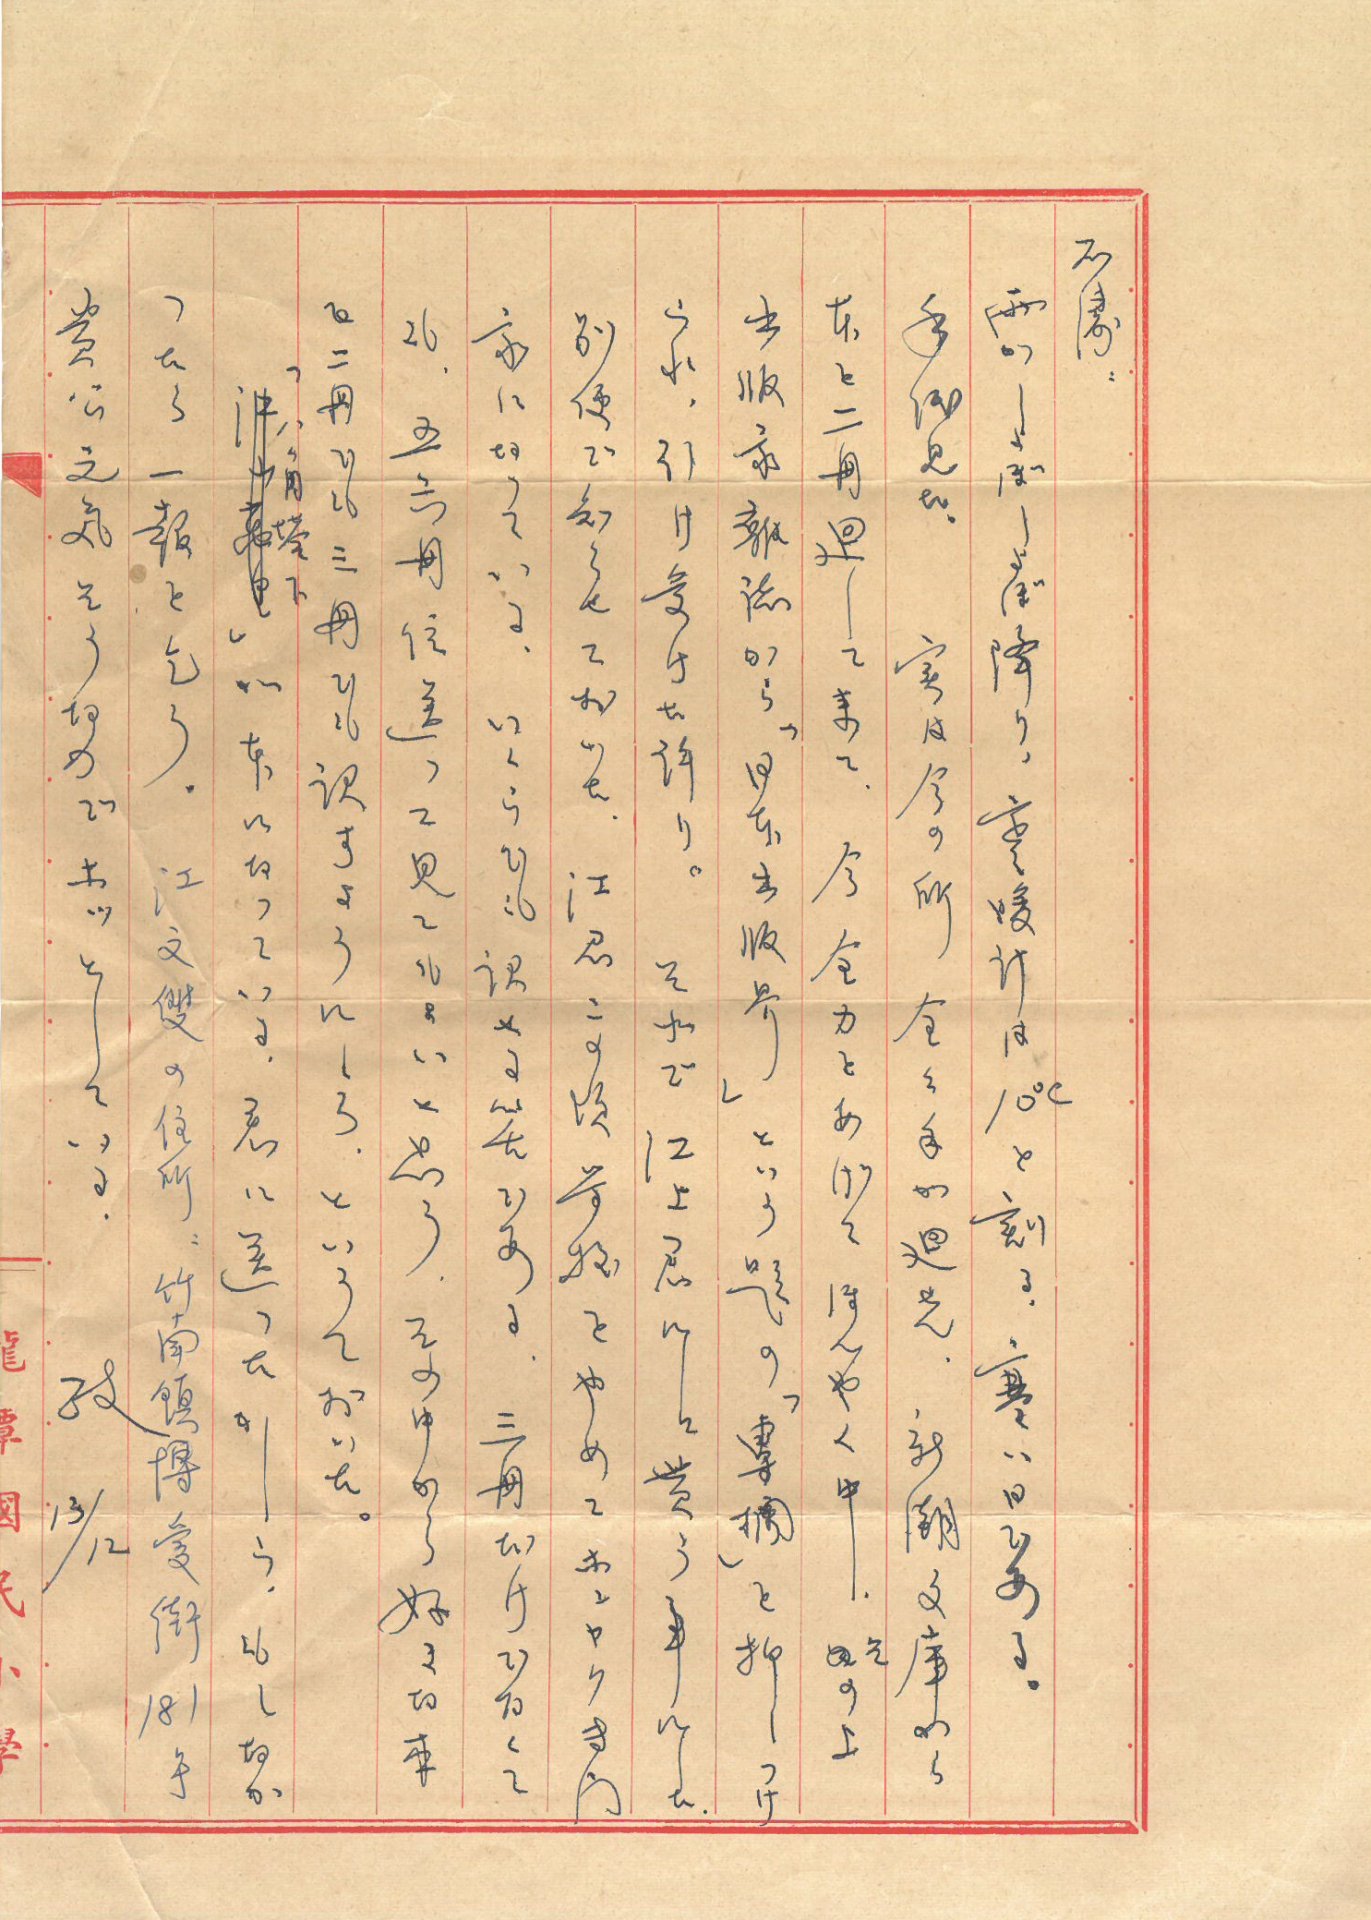 石濤:
雨がしとしと降り、寒暖計は10°Cと刻る。寒い日である。
手紙見た。 実は今の所 全く手が廻らん。新潮文庫から
本を二冊廻して来て、今全力をあげてほんやく中し、その上
出版家雑誌から「日本出版界」という題の「専欄」を押しつけ
られ、引け受けた許り。それで江上君にして貰う事にした。
別便で知らせておいた。江君この頃学校をやめてホンヤク専門
家になっている。いくらでも訳せる筈である。三冊だけでなくて
も、五六冊位送って見てもいいと思う。その中から好きな本
を二冊でも三冊でも訳すようにしろ、といっておいた。
「八角塔下」が本になっている。君に送ったかしら、もしなか
ったら一報を乞う。江文雙の住所:竹南鎮博愛街181号
貴公元気そうなのでホッとしている。
政 13/12
龍潭國民小學